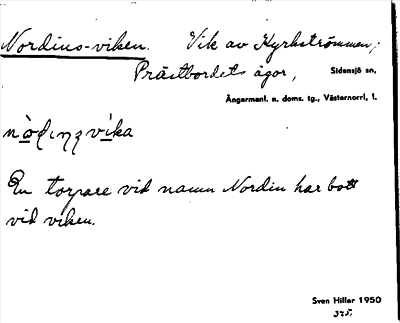 Nordins-viken. Vik av Kyrkströmmen,
Prästbordets ägor, Sidensjö sn,
Ångermanl. n. doms. tg., Västernorrl. l.
En torpare vid namn Nordin har bott
vid viken.
Sven Hiller 1950
325.